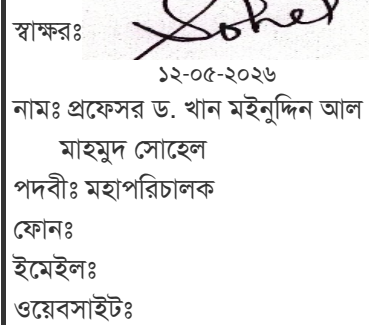 স্বাক্ষরঃ Sohel
১২-০৫-২০২৬
নামঃ প্রফেসর ড. খান মইনুদ্দিন আল
মাহমুদ সোহেল
পদবীঃ মহাপরিচালক
ফোনঃ
ইমেইলঃ
ওয়েবসাইটঃ